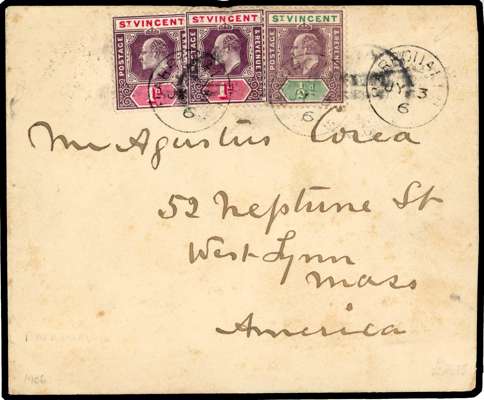 ST VINCENT ST VINCENT ST VINCENT
POSTAGE POSTAGE & REVENUE POSTAGE & REVENUE
1d 1d ½d
JY 3
6 6 6
Mr Agustus Corea
52 Neptune St
West-Lynn
Mass
America
1906